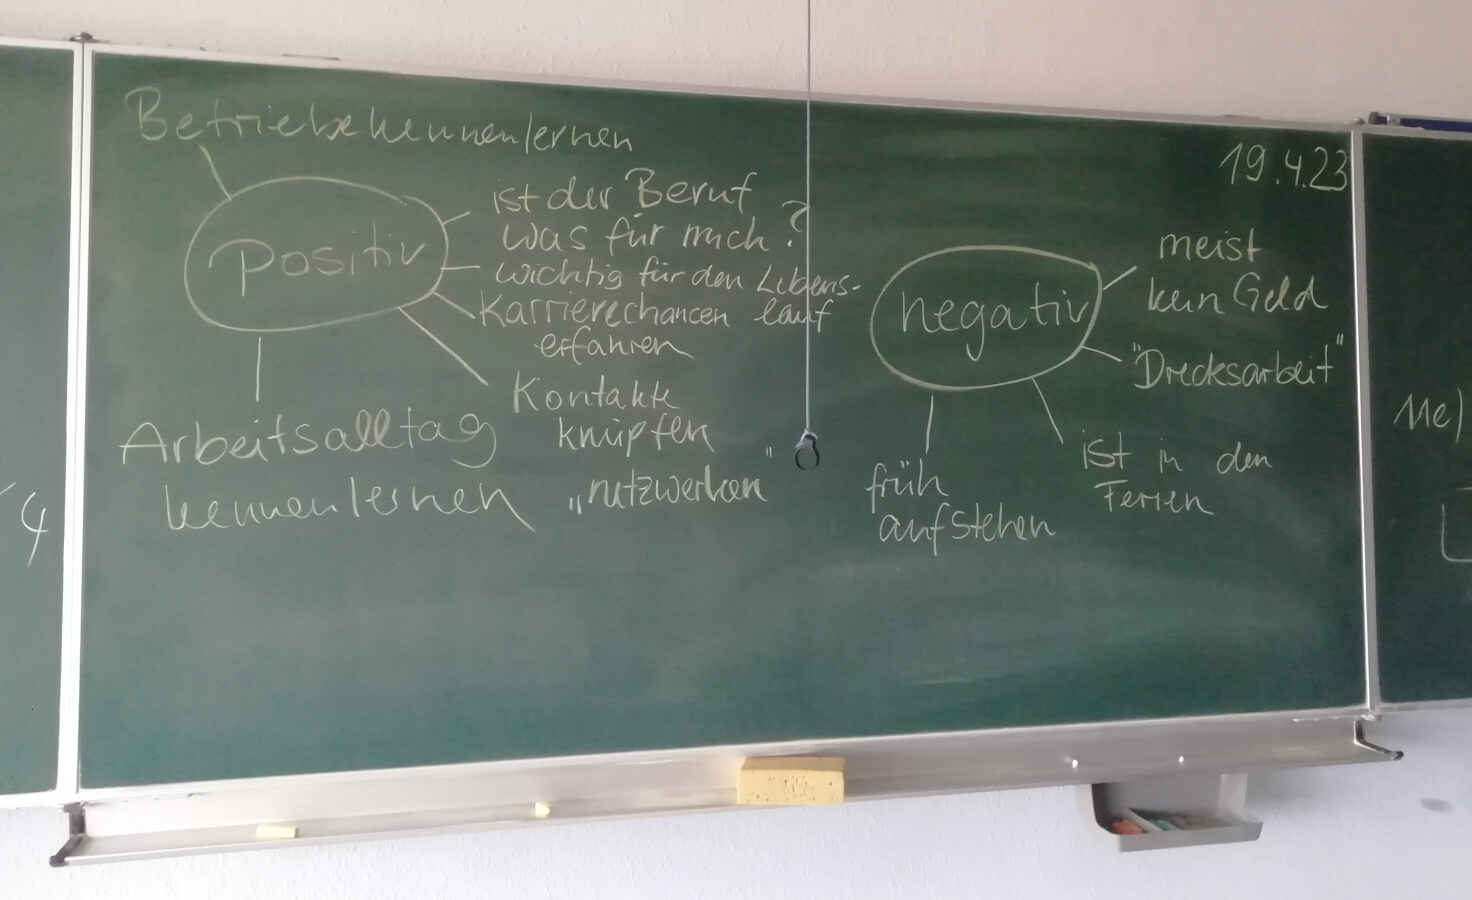 Betriebe kennenlernen
positiv
ist der Beruf
was für mich?
wichtig für den Lebens-
lauf
Karrierechancen
erfahren
Kontakte
knüpfen
„netzwerken"
Arbeitsalltag
kennenlernen
19.4.23
negativ
meist
kein Geld
"Drecksarbeit"
ist in den
Ferien
früh
aufstehen